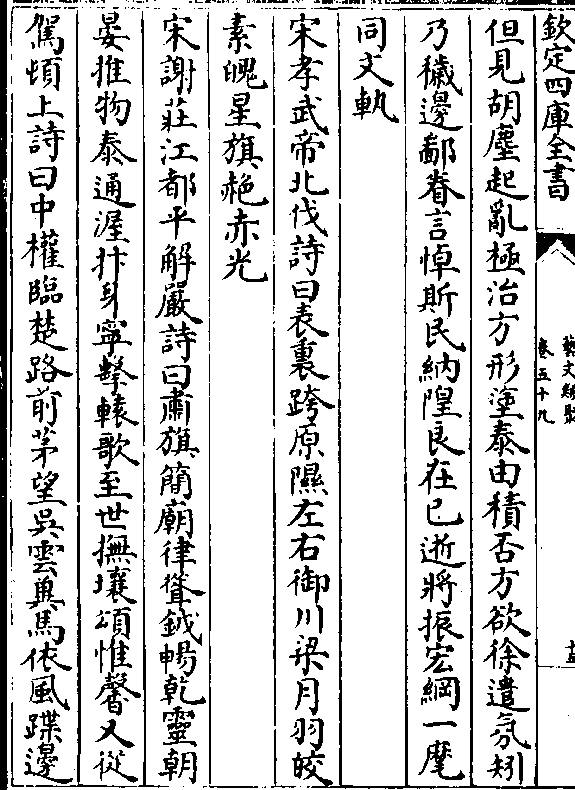 欽定四庫全書
藝文類聚
卷五十九
十五
但見胡塵起亂極治方形塗泰由積否方欲徐遣氛矧
乃穢邊鄙眷言悼斯民納隍良在已逝將振宏綱一麾
同文軌
宋孝武帝北伐詩曰表裏跨原隰左右御川梁月羽皎
素魄星旗赩赤光
宋謝莊江都平解嚴詩曰肅旗簡廟律聳鉞暢乾靈朝
晏推物泰通渥抃身寧擊轅歌至世撫壤頌惟馨又從
駕頓上詩曰中權臨楚路前茅望吳雲㢲馬依風蹀邊